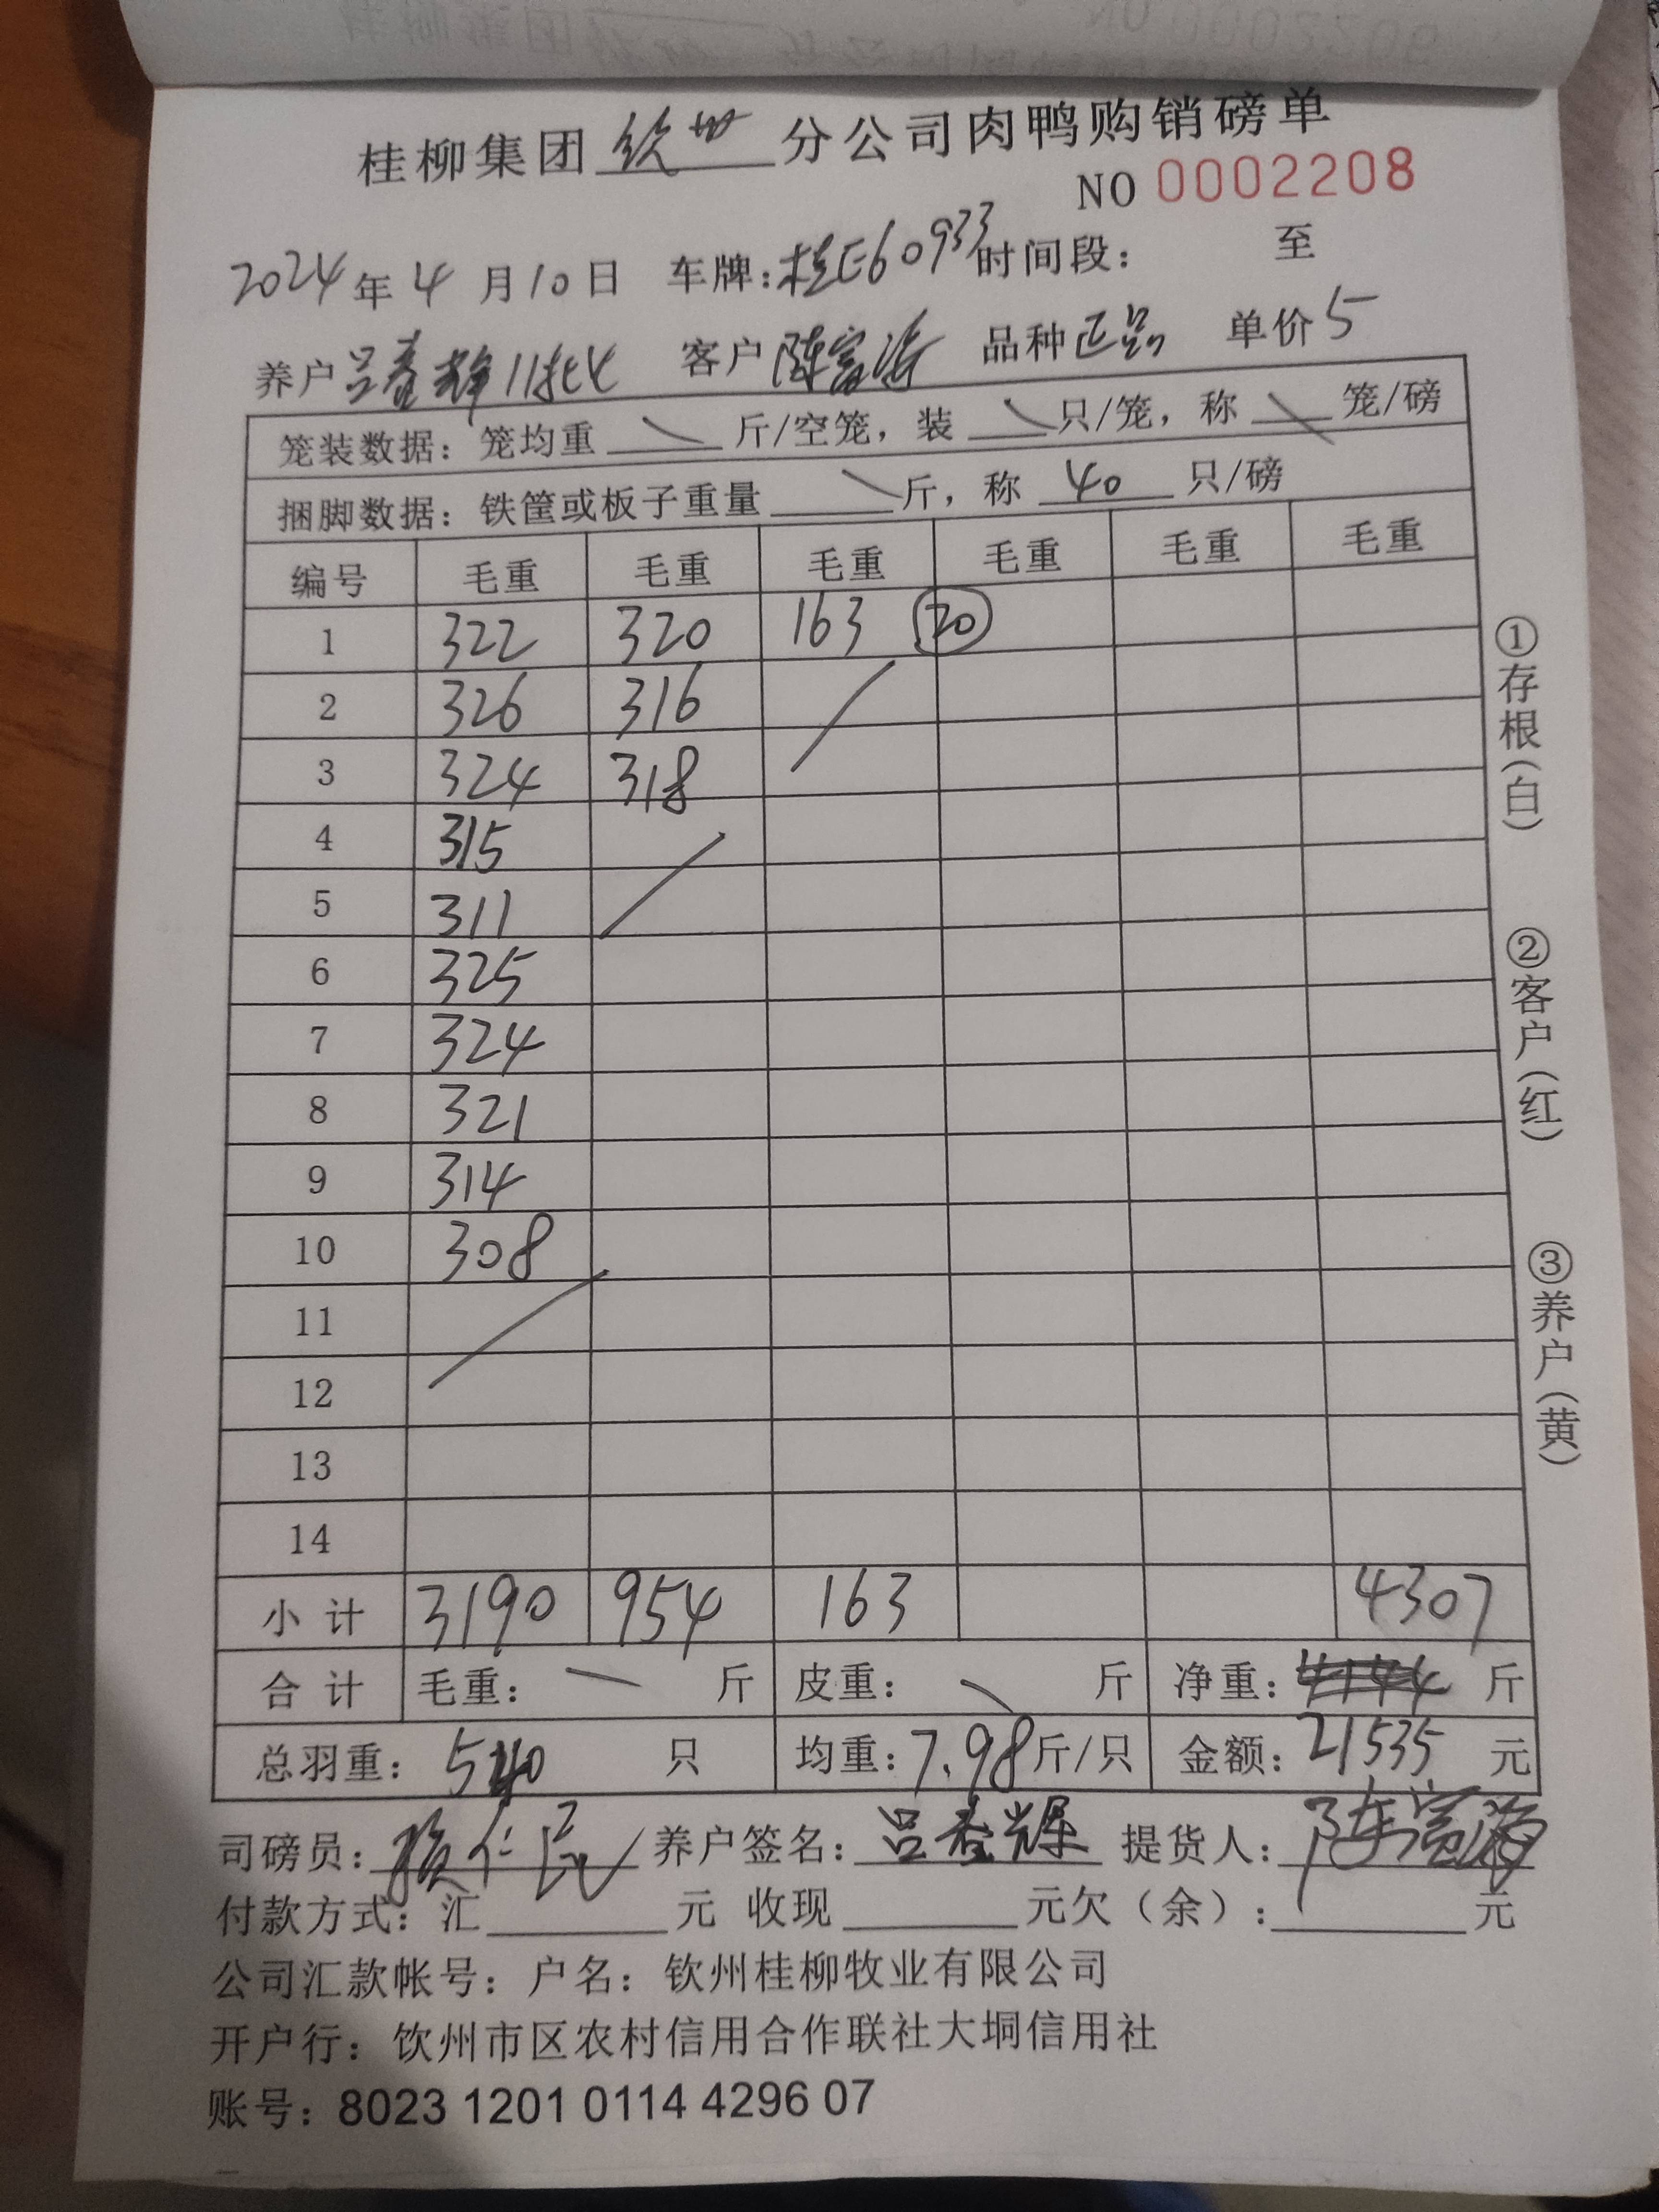 桂柳集团 钦州 分公司肉鸭购销磅单
NO 0002208
2024年4月10日 车牌:桂E60933 时间段: 至
养户 吕春辉11批 客户 陈富海 品种 正品 单价 5
笼装数据:笼均重 斤/空笼,装 只/笼,称 笼/磅
捆脚数据:铁筐或板子重量 斤,称 40 只/磅
编号 毛重 毛重 毛重 毛重 毛重 毛重
1 322 320 163 20
2 326 316
3 324 318
4 315
5 311
6 325
7 324
8 321
9 314
10 308
11
12
13
14
小计 3190 954 163 4307
合计 毛重: 斤 皮重: 斤 净重: 斤
总羽重: 540 只 均重: 7.98 斤/只 金额: 21535 元
司磅员: 仁民 养户签名: 吕春辉 提货人: 陈富海
付款方式:汇 元 收现 元欠(余): 元
公司汇款帐号:户名:钦州桂柳牧业有限公司
开户行:钦州市区农村信用合作联社大垌信用社
账号:8023 1201 0114 4296 07
①存根(白)
②客户(红)
③养户(黄)